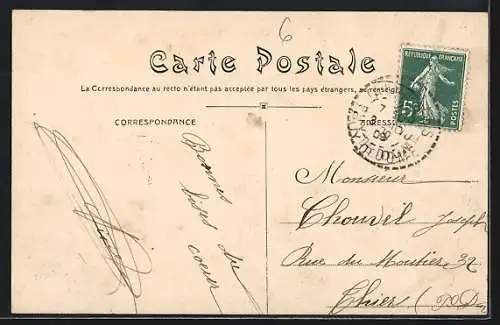 6
Carte Postale
RÉPUBLIQUE FRANÇAISE
5c
POSTES
La Correspondance au recto n'étant pas acceptée par tous les pays étrangers,
CORRESPONDANCE
ADRESSE
7
09
PUY-DE-DOME
Bonnes
bises du
coeur
Monsieur
Chouvel Joseph
Rue du Moutier 32
Thiers (P. D.)